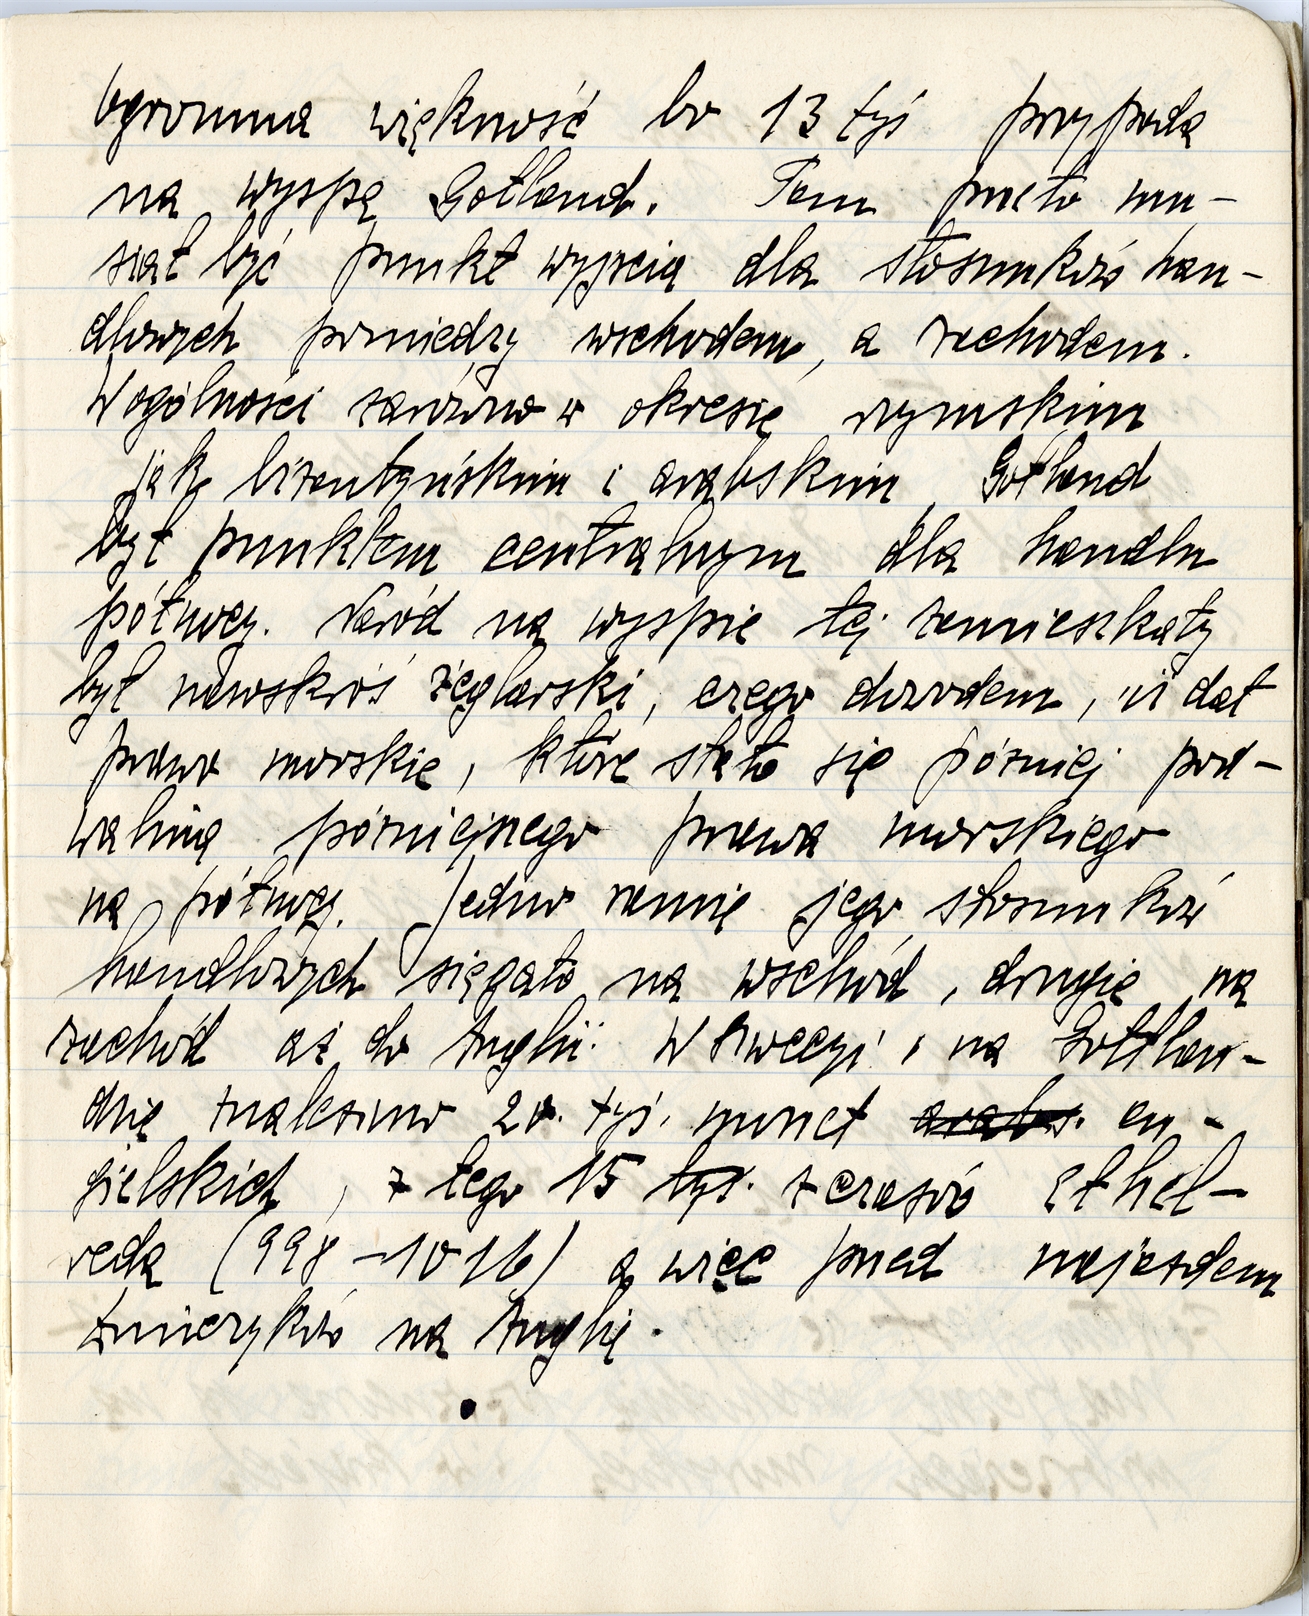 ogromna większość bo 13 tyś przypada
na wyspę Gotland. Tam przeto mu-
siał być punkt wyjścia dla stosunków han-
dlowych pomiędzy wschodem, a zachodem.
Wogólności zarówno w okresie rzymskim
jak bizantyńskim i arabskim, Gotland
był punktem centralnym dla handlu
północy. Naród na wyspie tej zamieszkały
był nawskróś żeglarski, czego dowodem, iż dał
prawo morskie, które stało się później pod-
waliną późniejszego prawa morskiego
na północy. Jedno ramię jego stosunków
handlowych sięgało na wschód, drugie na
zachód aż do Anglii. W Szwecyi i na Gottlan-
dnie znaleziono 20. tyś. monet arabs. an-
gielskich, z tego 15 tyś. z czasów Ethel-
reda (998-1016) a więc przed najazdem
Duńczyków na Anglię.